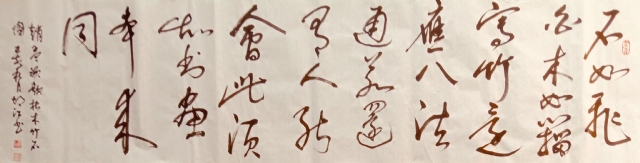 石如飛
白木如籀
寫竹還
應八法
通若還
有人能
會此須
知書畫
本來
同
趙孟頫 枯木竹石
圖 書